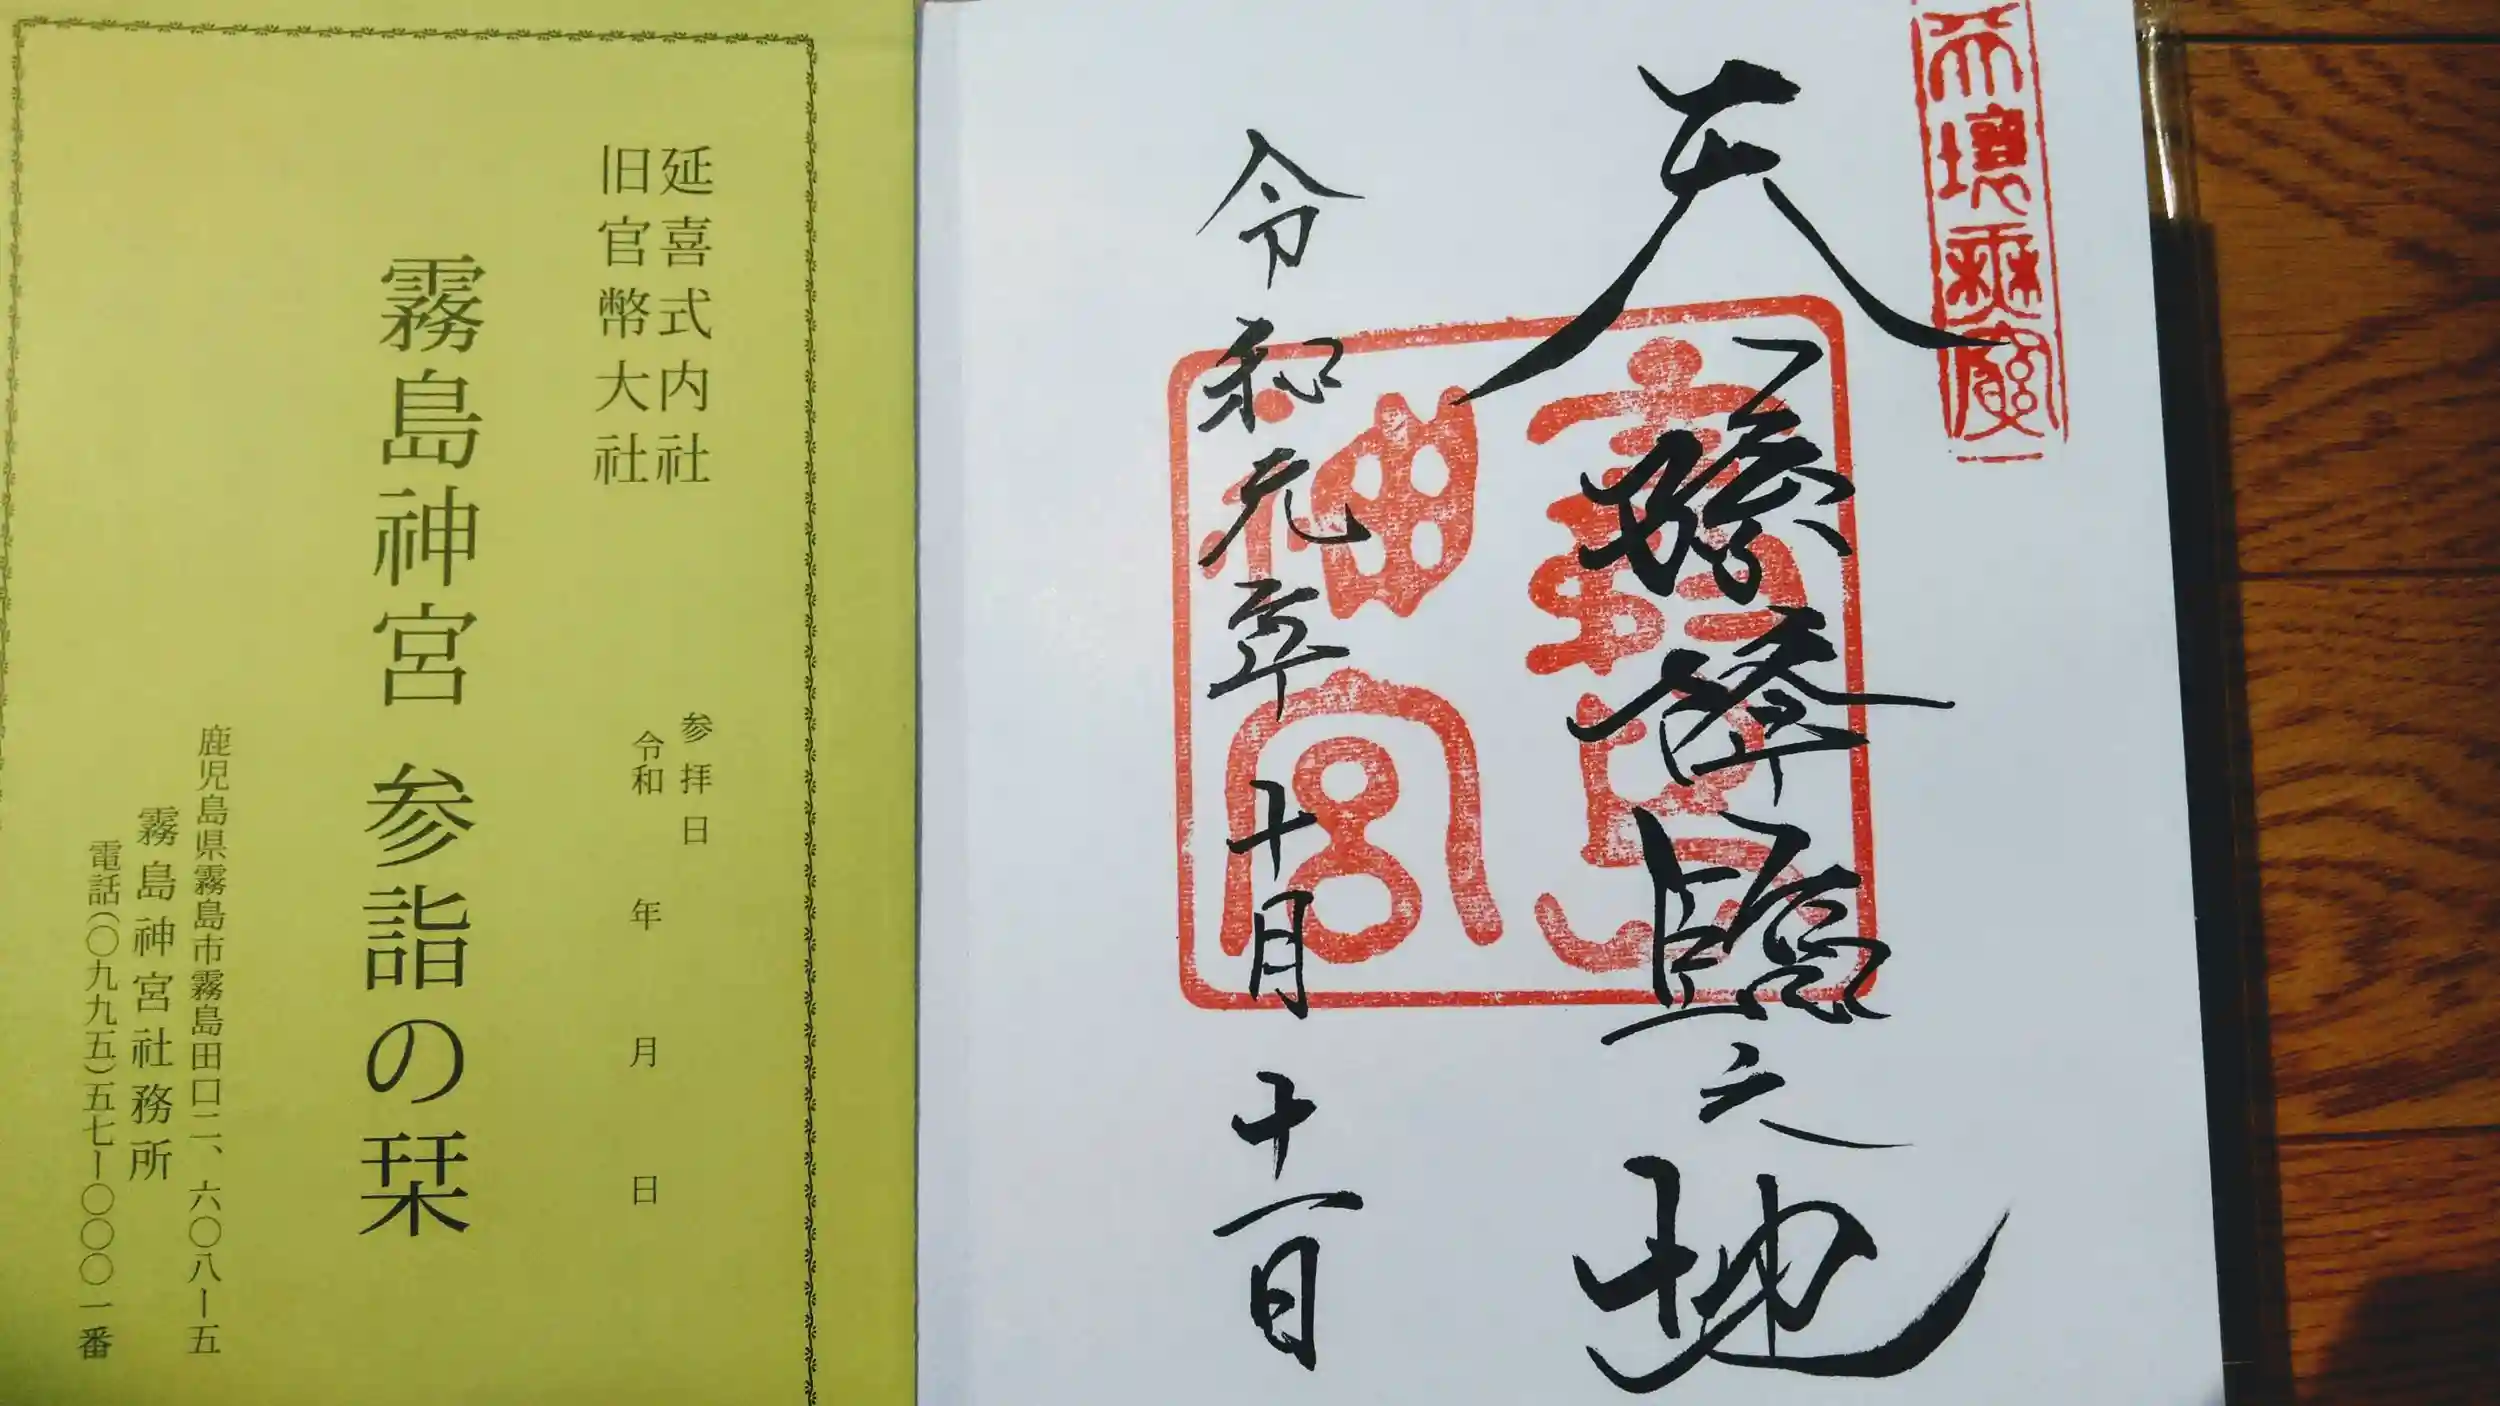 延喜式内社
旧官幣大社
参拝日
令和 年 月 日
霧島神宮 参詣の栞
鹿児島県霧島市霧島田口二、六〇八ー五
霧島神宮社務所
電話(〇九九五)五七ー〇〇〇一番
天壤無窮
天孫降臨之地
霧島
神宮
令和元年十月十一日